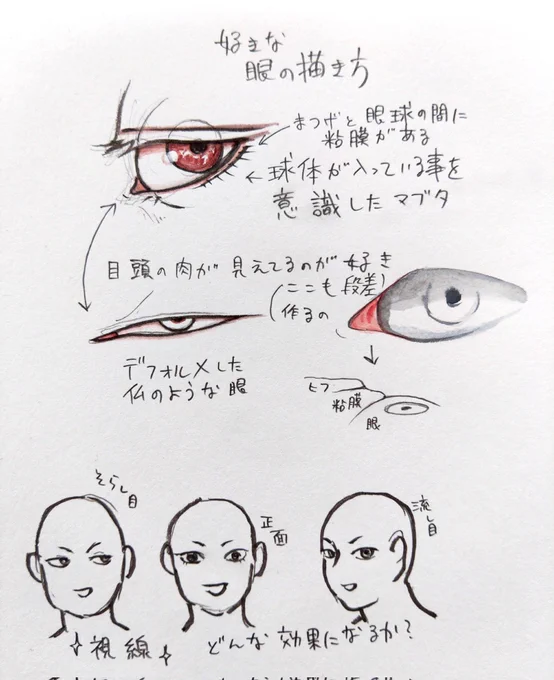 好きな
眼の描き方
まつげと眼球の間に
粘膜がある
球体が入っている事を
意識したマブタ
目頭の肉が見えてるのが好き
(ここも段差)
作るの
デフォルメした
仏のような眼
ヒフ
粘膜
眼
そらし目
正面
流し目
視線
どんな効果になるか?